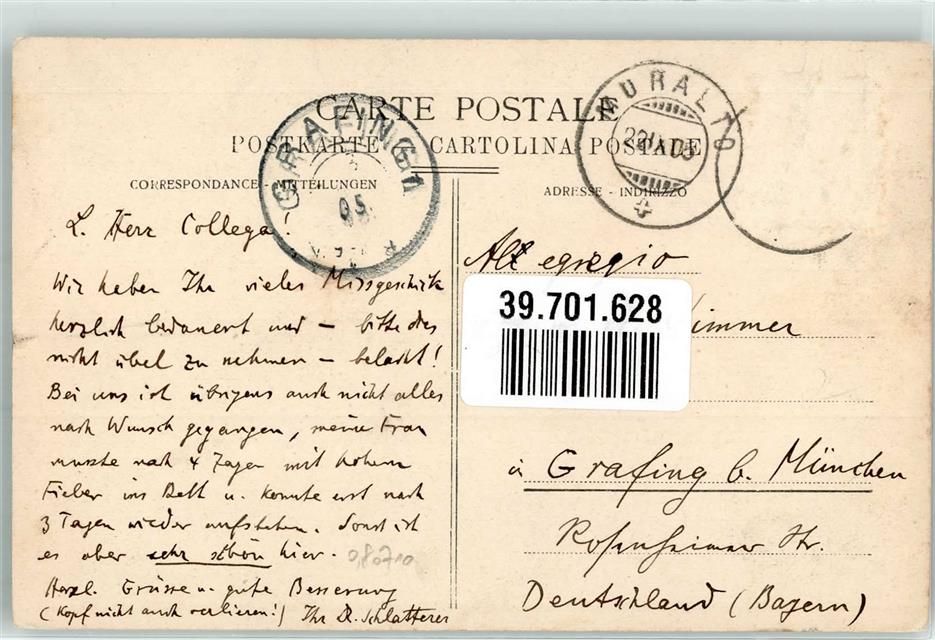 CARTE POSTALE
POSTKARTE CARTOLINA POSTALE
CORRESPONDANCE - MITTEILUNGEN
ADRESSE - INDIRIZZO
GRAFING
05
MURALTO
L. Herr Collega!
Wir haben Ihr vieles Missgeschick
herzlich bedauert und – bitte dies
nicht übel zu nehmen – belacht!
Bei uns ist übrigens auch nicht alles
nach Wunsch gegangen, meine Frau
musste nach 4 Tagen mit hohem
Fieber ins Bett u. konnte erst nach
3 Tagen wieder aufstehen. Sonst ist
es aber sehr schön hier.
Herzl. Grüsse u. gute Besserung
(Kopf nicht auch verlieren!) Ihr D. Schlatterer
egregio
39.701.628
immer
in Grafing b. München
Rosenheimer Str.
Deutschland (Bayern)